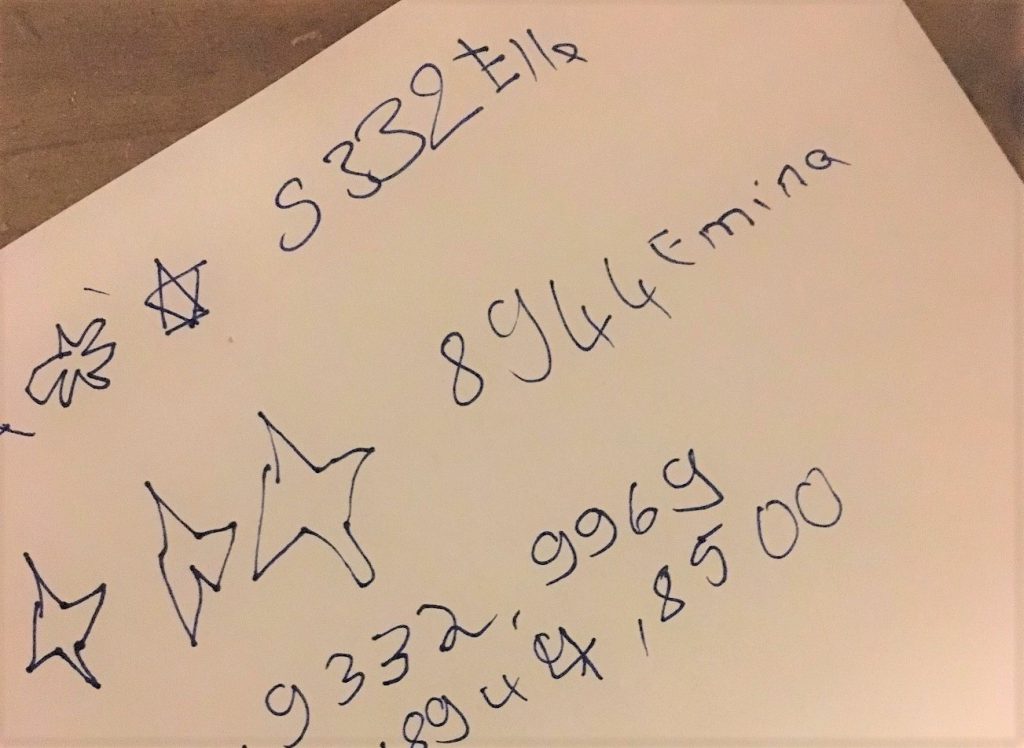 5332 Ella
8944 Emina
9332, 9969
8944, 8500